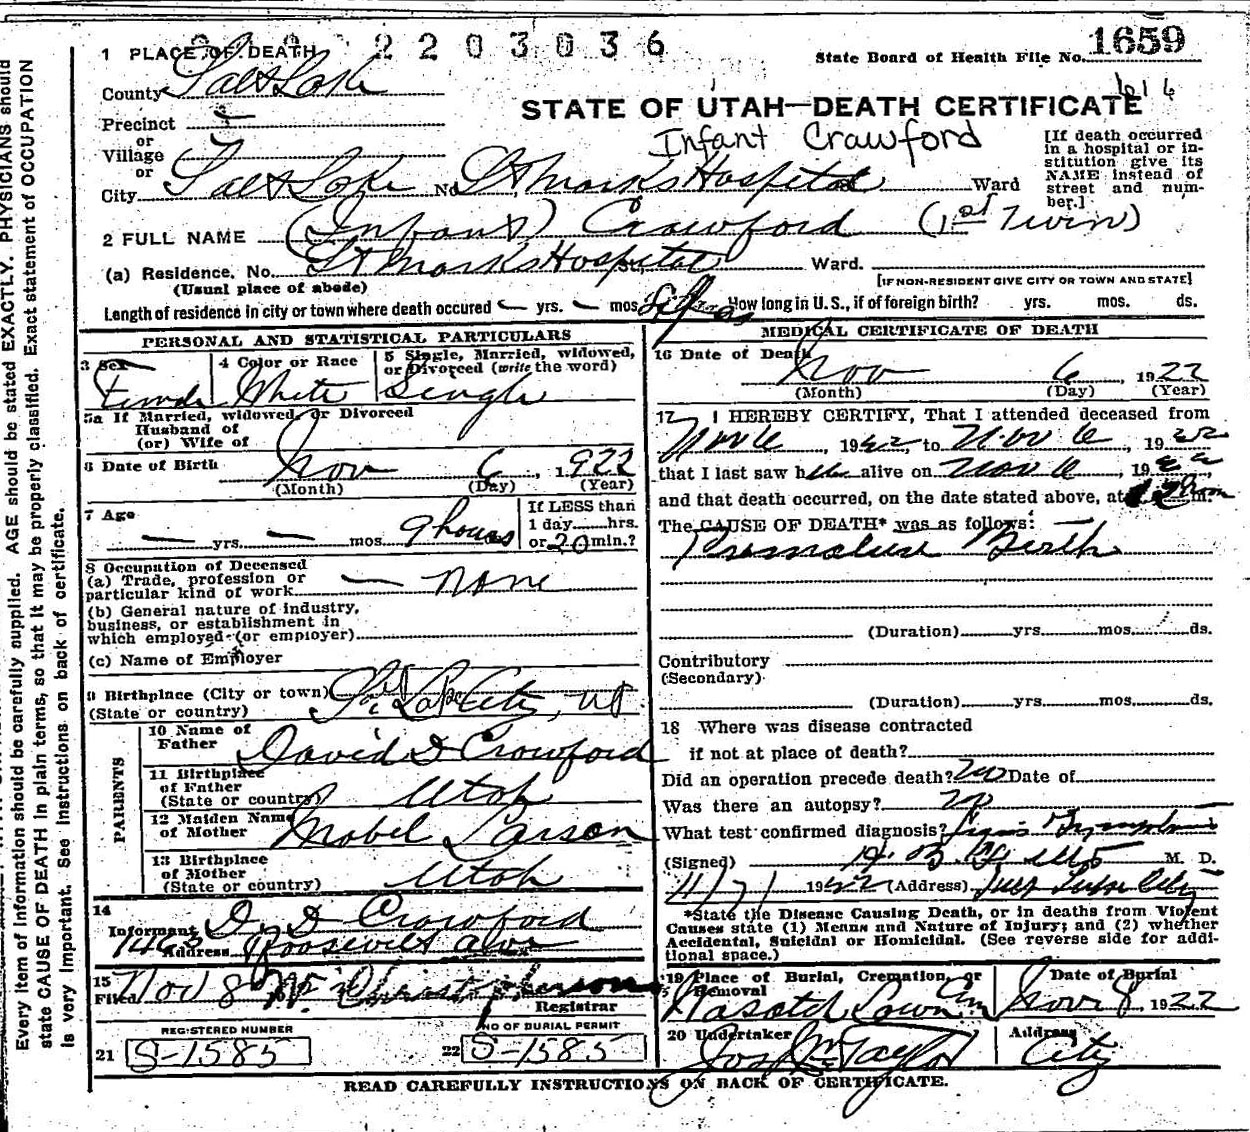 1 PLACE OF DEATH 2203036
State Board of Health File No. 1659
County Salt Lake
616
STATE OF UTAH—DEATH CERTIFICATE
Precinct
or
Village
or
Infant Crawford
[If death occurred in a hospital or institution give its NAME instead of street and number.]
City Salt Lake No. St Marks Hospital Ward
2 FULL NAME (Infant) Crawford (1st Twin)
(a) Residence. No. St Marks Hospital St., Ward.
(Usual place of abode) [IF NON-RESIDENT GIVE CITY OR TOWN AND STATE]
Length of residence in city or town where death occured — yrs. — mos. How long in U. S., if of foreign birth? yrs. mos. ds.
PERSONAL AND STATISTICAL PARTICULARS
3 Sex Female
4 Color or Race White
5 Single, Married, widowed, or Divorced (write the word) Single
5a If Married, widowed, or Divorced
Husband of
(or) Wife of
6 Date of Birth Nov 6, 1922
(Month) (Day) (Year)
7 Age — yrs. — mos. 9 hours
If LESS than
1 day hrs.
or 20 min.?
8 Occupation of Deceased
(a) Trade, profession or
particular kind of work — none
(b) General nature of industry,
business, or establishment in
which employed (or employer)
(c) Name of Employer
9 Birthplace (City or town) S. Lake City, Ut
(State or country)
PARENTS
10 Name of
Father David D Crawford
11 Birthplace
of Father
(State or country) Utah
12 Maiden Name
of Mother Mabel Larson
13 Birthplace
of Mother
(State or country) Utah
14
Informant D. D Crawford
Address 1463 Roosevelt Ave
15
Filed Nov 8
Registrar
REGISTERED NUMBER
21 S-1585
NO OF BURIAL PERMIT
22 S-1585
MEDICAL CERTIFICATE OF DEATH
16 Date of Death Nov 6, 1922
(Month) (Day) (Year)
17 I HEREBY CERTIFY, That I attended deceased from
Nov 6, 1922, to Nov 6, 1922
that I last saw her alive on Nov 6, 1922
and that death occurred, on the date stated above, at m.
The CAUSE OF DEATH* was as follows:
Premature Birth
(Duration) yrs. mos. ds.
Contributory
(Secondary)
(Duration) yrs. mos. ds.
18 Where was disease contracted
if not at place of death?
Did an operation precede death? no Date of
Was there an autopsy? no
What test confirmed diagnosis? Signs Symptoms
(Signed) M. D.
11/7/ 1922 (Address)
*State the Disease Causing Death, or in deaths from Violent
Causes state (1) Means and Nature of Injury; and (2) whether
Accidental, Suicidal or Homicidal. (See reverse side for addi-
tional space.)
19 Place of Burial, Cremation, or
Removal Wasatch Lawn Cem
Date of Burial
Nov 8 1922
20 Undertaker Jos. Wm Taylor
Address City
READ CAREFULLY INSTRUCTIONS ON BACK OF CERTIFICATE.
Every item of information should be carefully supplied. AGE should be stated EXACTLY. PHYSICIANS should
state CAUSE OF DEATH in plain terms, so that it may be properly classified. Exact statement of OCCUPATION
is very important. See instructions on back of certificate.